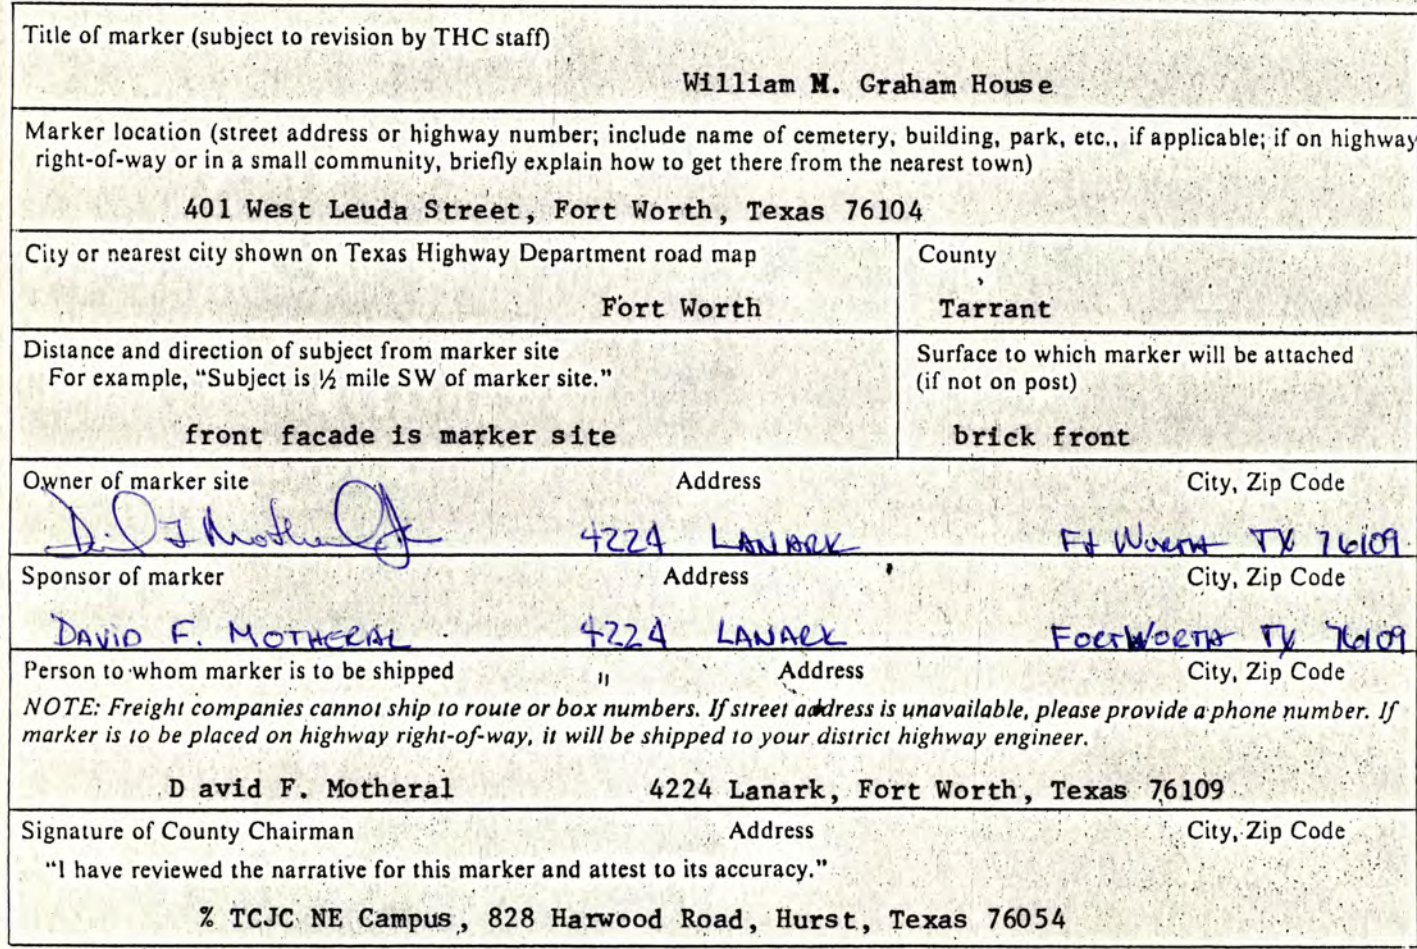 Title of marker (subject to revision by THC staff)
William M. Graham House
Marker location (street address or highway number; include name of cemetery, building, park, etc., if applicable; if on highway
right-of-way or in a small community, briefly explain how to get there from the nearest town)
401 West Leuda Street, Fort Worth, Texas 76104
City or nearest city shown on Texas Highway Department road map County
Fort Worth Tarrant
Distance and direction of subject from marker site Surface to which marker will be attached
For example, "Subject is ½ mile SW of marker site." (if not on post)
front facade is marker site brick front
Owner of marker site Address City, Zip Code
4224 LANARK Ft Worth TX 76109
Sponsor of marker Address City, Zip Code
DAVID F. MOTHERAL 4224 LANARK FORT WORTH TX 76109
Person to whom marker is to be shipped " Address City, Zip Code
NOTE: Freight companies cannot ship to route or box numbers. If street address is unavailable, please provide a phone number. If
marker is to be placed on highway right-of-way, it will be shipped to your district highway engineer.
D avid F. Motheral 4224 Lanark, Fort Worth, Texas 76109
Signature of County Chairman Address City, Zip Code
"I have reviewed the narrative for this marker and attest to its accuracy."
% TCJC NE Campus, 828 Harwood Road, Hurst, Texas 76054